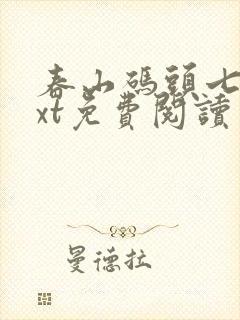 春山碼頭七
xt免費閱讀
曼德拉